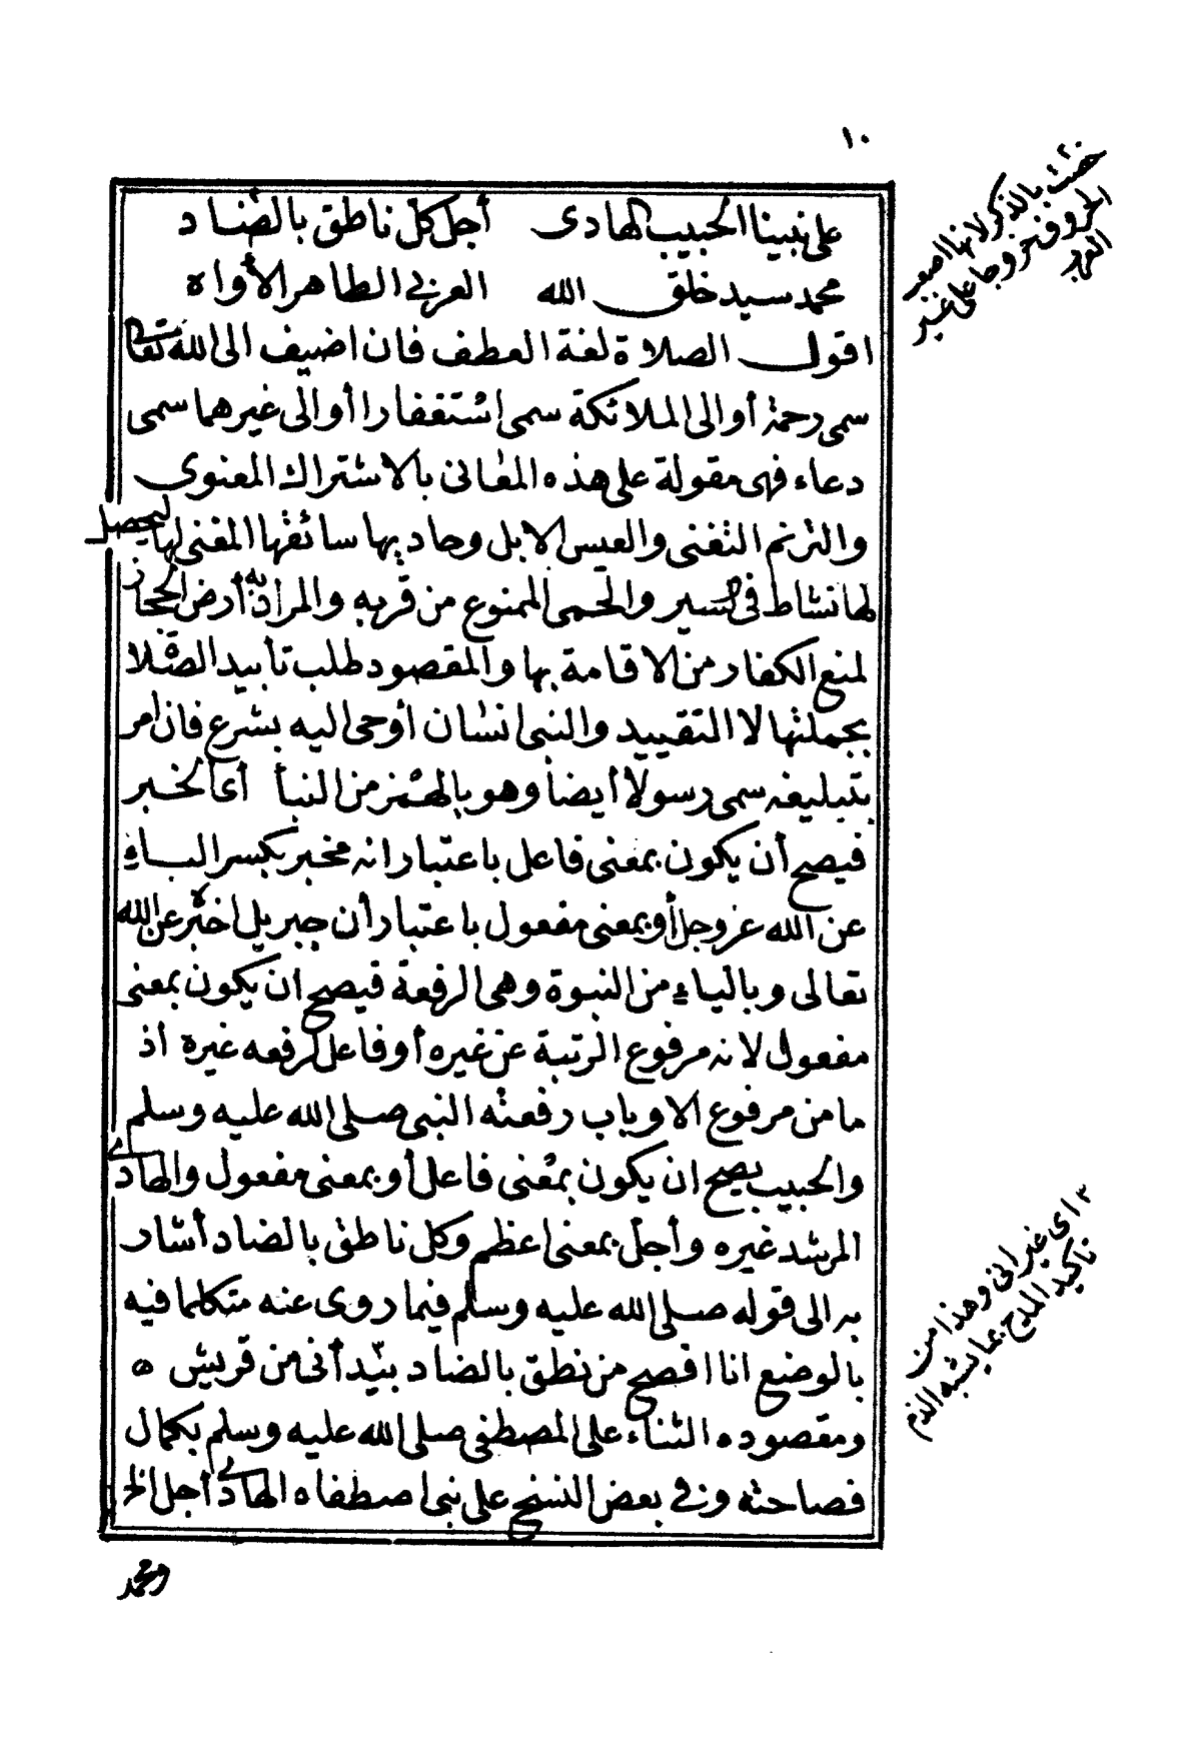 ١٠
على نبينا الحبيب الهادى أجل كل ناطق بالضاد
محمد سيد خلق الله العربى الطاهر الأواه
اقول الصلاة لغة العطف فان اضيف الى الله تعالى
سمى رحمة أو الى الملائكة سمى استغفارا أو الى غيرهما سمى
دعاء فهى مقولة على هذه المعانى بالاشتراك المعنوى
والترنم التغنى والعيس الابل وحاديها سائقها المغنى لها ليحصل
لها نشاط فى السير والحمى الممنوع من قربه والمراد به أرض الحجاز
لمنع الكفار من الاقامة بها والمقصود طلب تأبيد الصلاة
بجملتها لا التقييد والنبى انسان أوحى اليه بشرع فان امر
بتبليغه سمى رسولا أيضا وهو بالهمز من النبأ أى الخبر
فيصح أن يكون بمعنى فاعل باعتبار انه مخبر بكسر الباء
عن الله عز وجل أو بمعنى مفعول باعتبار أن جبريل اخبره عن الله
تعالى وبالياء من النبوة وهى الرفعة فيصح ان يكون بمعنى
مفعول لانه مرفوع الرتبة عن غيره أو فاعل لرفعه غيره اذ
ما من مرفوع الا وباب رفعته النبى صلى الله عليه وسلم
والحبيب يصح ان يكون بمعنى فاعل أو بمعنى مفعول والهادى
المرشد غيره وأجل بمعنى اعظم وكل ناطق بالضاد أشار
به الى قوله صلى الله عليه وسلم فيما روى عنه متكلما فيه
بالوضع انا افصح من نطق بالضاد بيد أنى من قريش ه
ومقصوده الثناء على المصطفى صلى الله عليه وسلم بكمال
فصاحته وفى بعض النسخ على نبى اصطفاه الهادى أجل الخ
ومحمد
خصت بالذكر لانها اصعر
الحروف خروجا على غير
العرب
٣ اى غير انى وهذا من
تأكيد المدح بما يشبه الذم